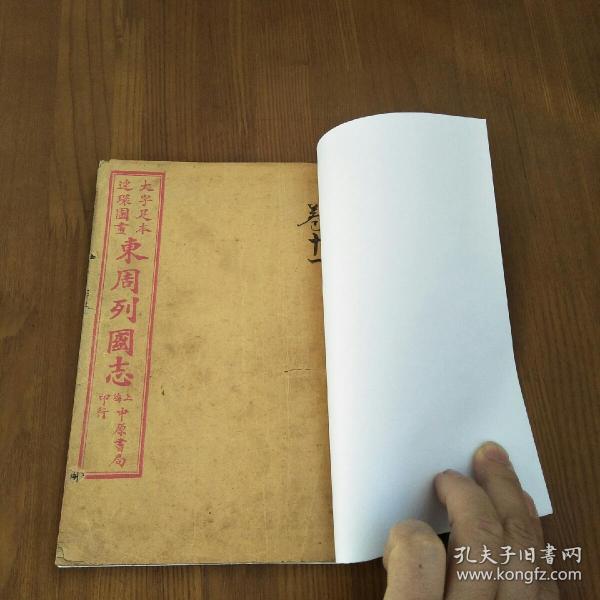 大字足本
連環圖畫
東周列國志
上海
中原書局
印行
卷十一
孔夫子旧书网
www.kongfz.com